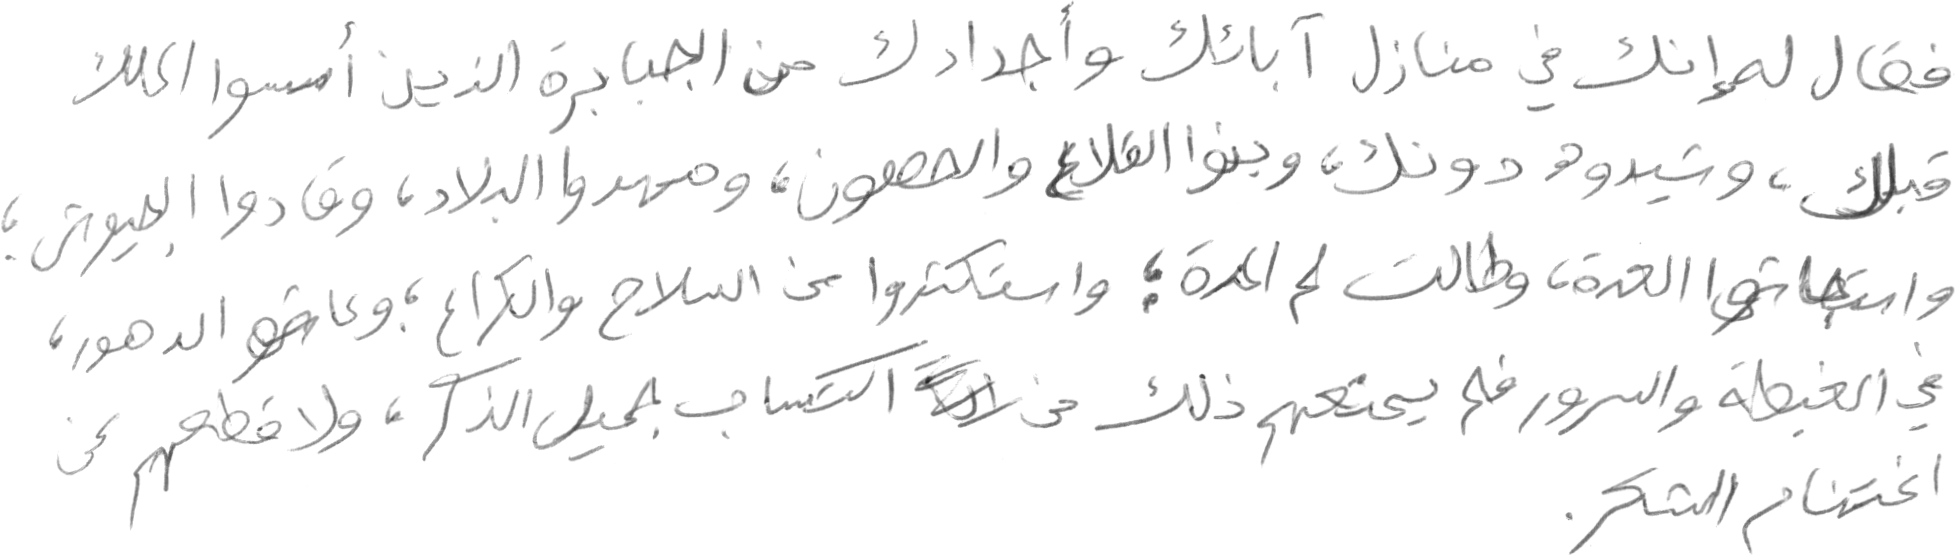 فقال له إنك في منازل آبائك وأجدادك من الجبابرة الذين أسسوا الملك
قبلك، وشيدوه دونك، وبنوا القلاع والحصون، ومهدوا البلاد، وقادوا الجيوش؛
واستجاشوا العدة، وطالت لهم المدة؛ واستكثروا من السلاح والكراع؛ وعاشوا الدهور،
في الغبطة والسرور فلم يمنعهم ذلك من اكتساب جميل الذكر، ولا قطعهم عن
اغتنام الشكر.